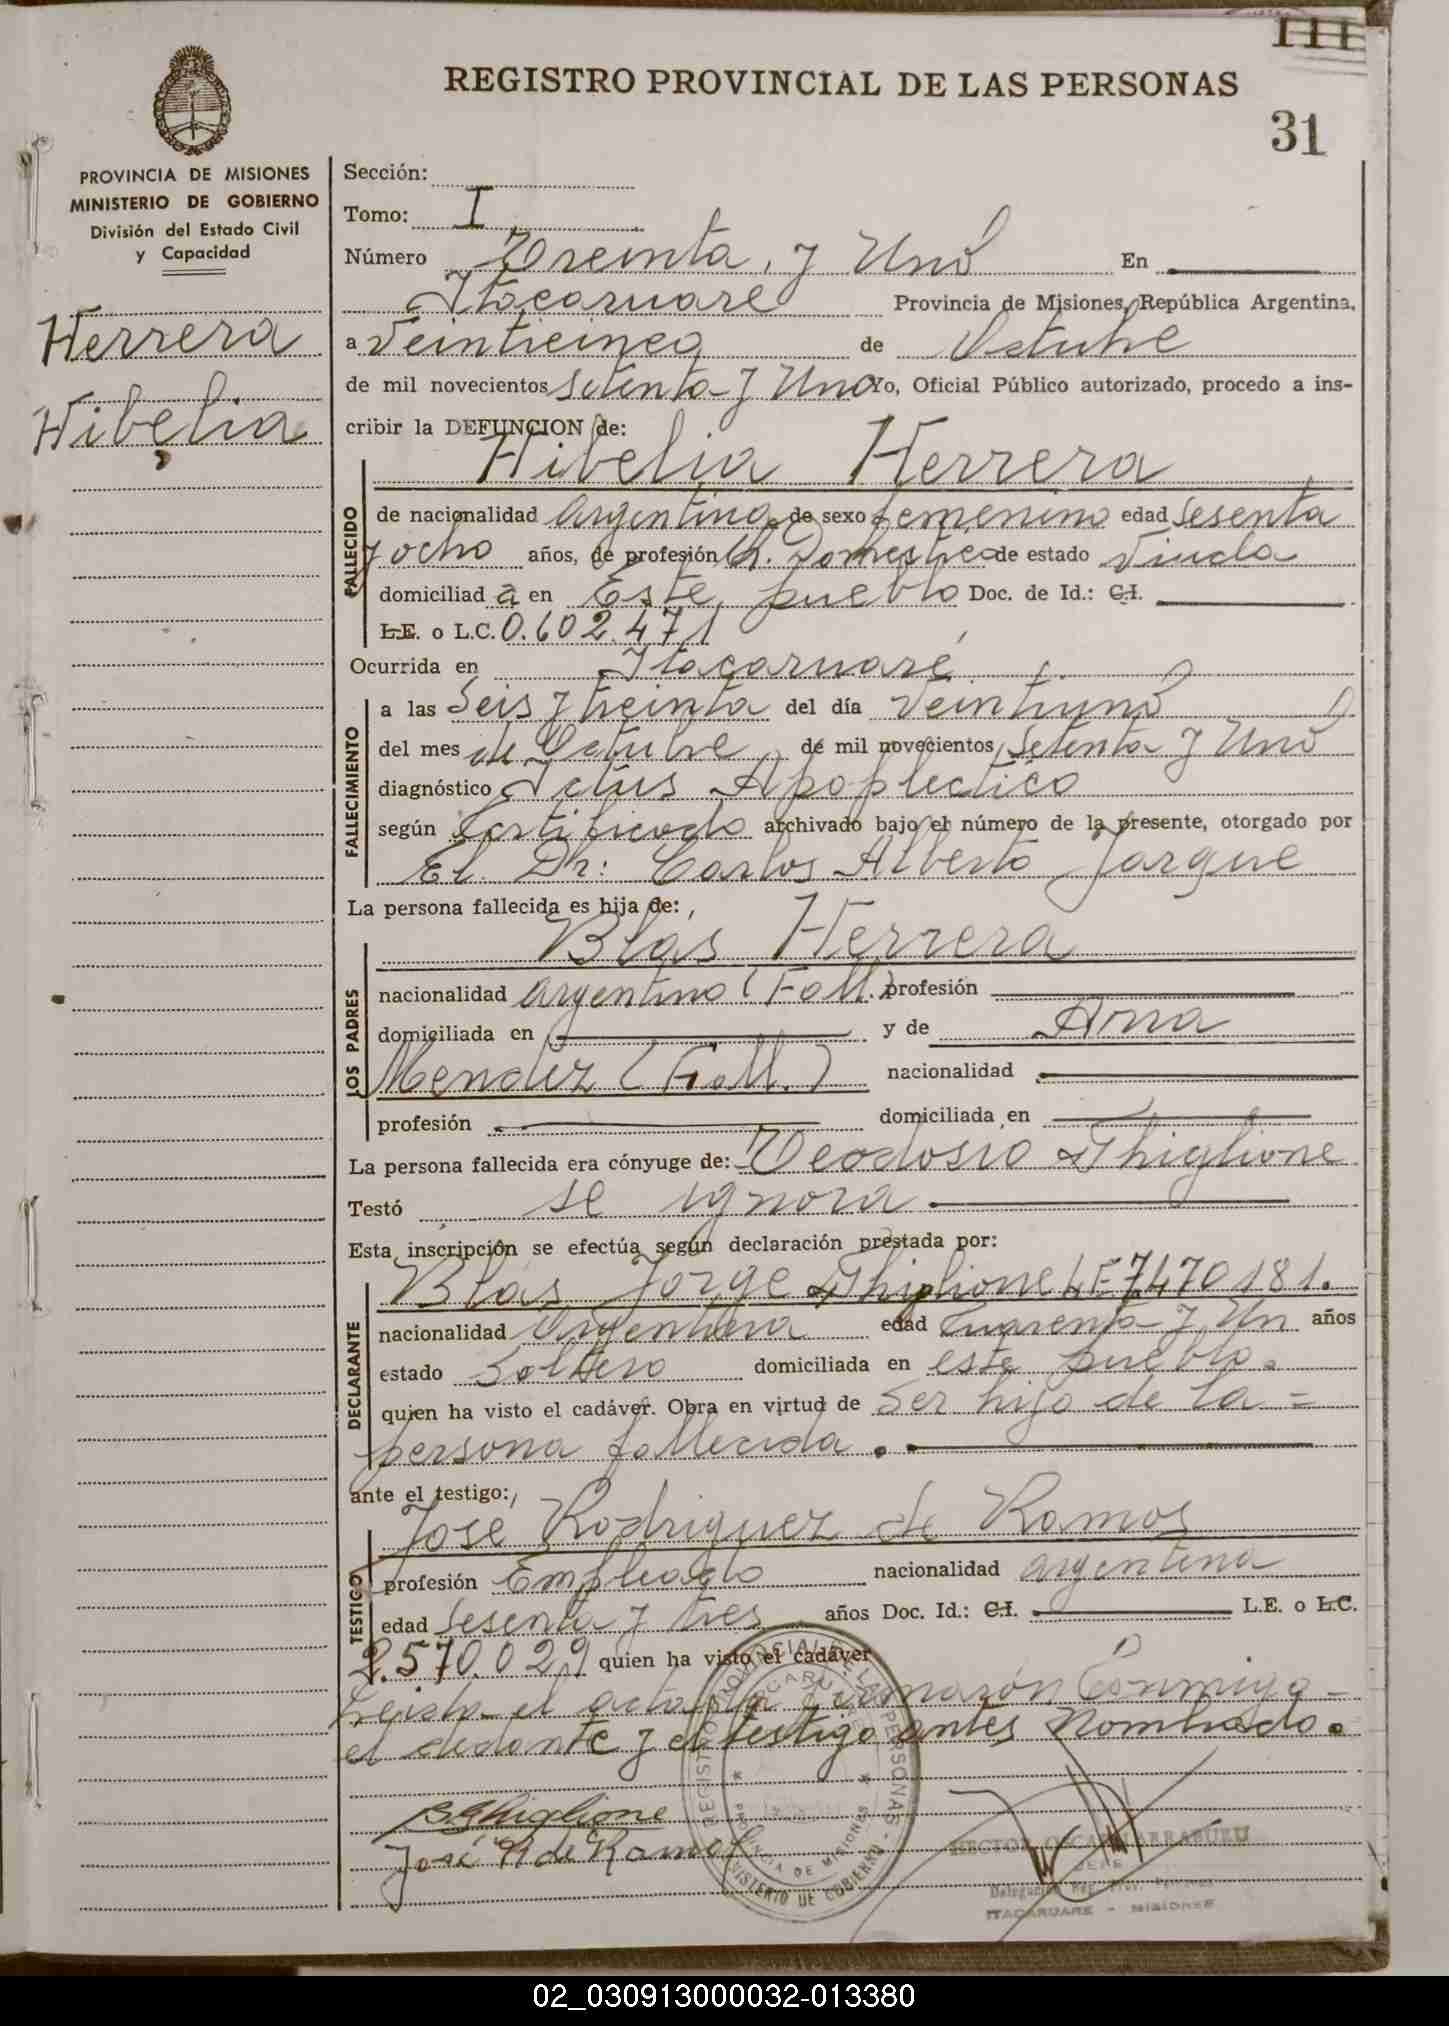 111
REGISTRO PROVINCIAL DE LAS PERSONAS
31
PROVINCIA DE MISIONES
MINISTERIO DE GOBIERNO
División del Estado Civil
y Capacidad
Herrera
Hibelia
Sección:
Tomo: I
Número Treinta, y Uno En
Itacaruare Provincia de Misiones, República Argentina,
a Veinticinco de Octubre
de mil novecientos setenta y Uno Yo, Oficial Público autorizado, procedo a ins-
cribir la DEFUNCION de:
Hibelia Herrera
FALLECIDO
de nacionalidad Argentina de sexo femenino edad Sesenta
y ocho años, de profesión Q. Domestico de estado Viuda
domiciliad a en Este pueblo Doc. de Id.: C.I.
L.E. o L.C. 0.602.471
Ocurrida en Itacaruaré
FALLECIMIENTO
a las Seis y treinta del día veintiuno
del mes de Octubre de mil novecientos setenta y Uno
diagnóstico Ictus Apoplectico
según Certificado archivado bajo el número de la presente, otorgado por
El Dr: Carlos Alberto Jarque
La persona fallecida es hija de:
Blas Herrera
LOS PADRES
nacionalidad argentino (Fall.) profesión
domiciliada en y de Ana
Mendez (Fall.) nacionalidad
profesión domiciliada en
La persona fallecida era cónyuge de: Teodosio Ghiglione
Testó se ignora
Esta inscripción se efectúa según declaración prestada por:
Blas Jorge Ghiglione L.E 7.470181.
DECLARANTE
nacionalidad Argentina edad Cuarenta y Un años
estado Soltero domiciliada en este pueblo.
quien ha visto el cadáver. Obra en virtud de Ser hijo de la =
persona fallecida.
ante el testigo:
Jose Rodriguez de Ramos
TESTIGO
profesión Empleado nacionalidad argentina
edad Sesenta y tres años Doc. Id.: C.I. L.E. o L.C.
2.570.029 quien ha visto el cadáver
el acta la Conmigo
el y el testigo antes Nombrado.
B. Ghiglione
José R de Ramos
REGISTRO PROVINCIAL DE LAS PERSONAS
ITACARUARE
PROVINCIA DE MISIONES
MINISTERIO DE GOBIERNO
HECTOR OSCAR
JEFE
Delegación Reg. Prov.
ITACARUARE - MISIONES
02_030913000032-013380